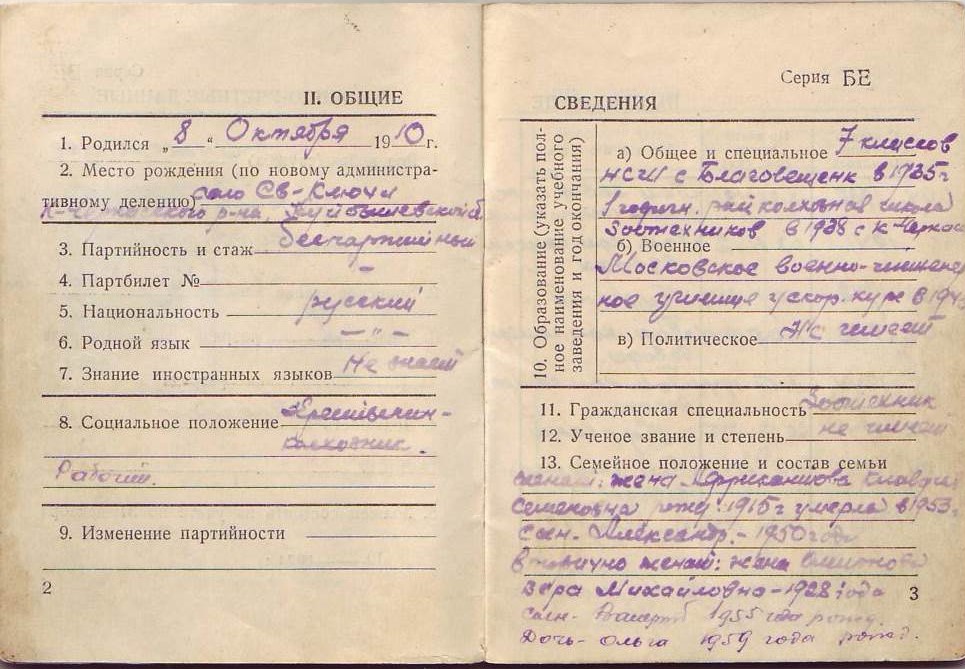 II. ОБЩИЕ
1. Родился „ 8 “ Октября 1910 г.
2. Место рождения (по новому администра-
тивному делению) село Св-Ключи
р-на,
3. Партийность и стаж беспартийный
4. Партбилет № –
5. Национальность русский
6. Родной язык – " –
7. Знание иностранных языков Не знает
8. Социальное положение Крестьянин-
колхозник.
Рабочий.
9. Изменение партийности
2
Серия БЕ
СВЕДЕНИЯ
10. Образование (указать пол-
ное наименование учебного
заведения и год окончания)
а) Общее и специальное 7 классов
НСШ с Благовещенк в 1935 г
1 годичн. рай колхозная школа
Зоотехников в 1938 с К-Черкас
б) Военное
Московское военно-инженер
ное училище ускор. курс в
в) Политическое Не имеет
11. Гражданская специальность Зоотехник
12. Ученое звание и степень не имеет
13. Семейное положение и состав семьи
женат: жена
Семеновна рожд. 1915 г умерла в 1953 г
сын - Александр - 1950 года
вторично женат: жена
Вера Михайловна - 1928 года
сын - 1955 года рожд.
Дочь - Ольга 1959 года рожд.
3